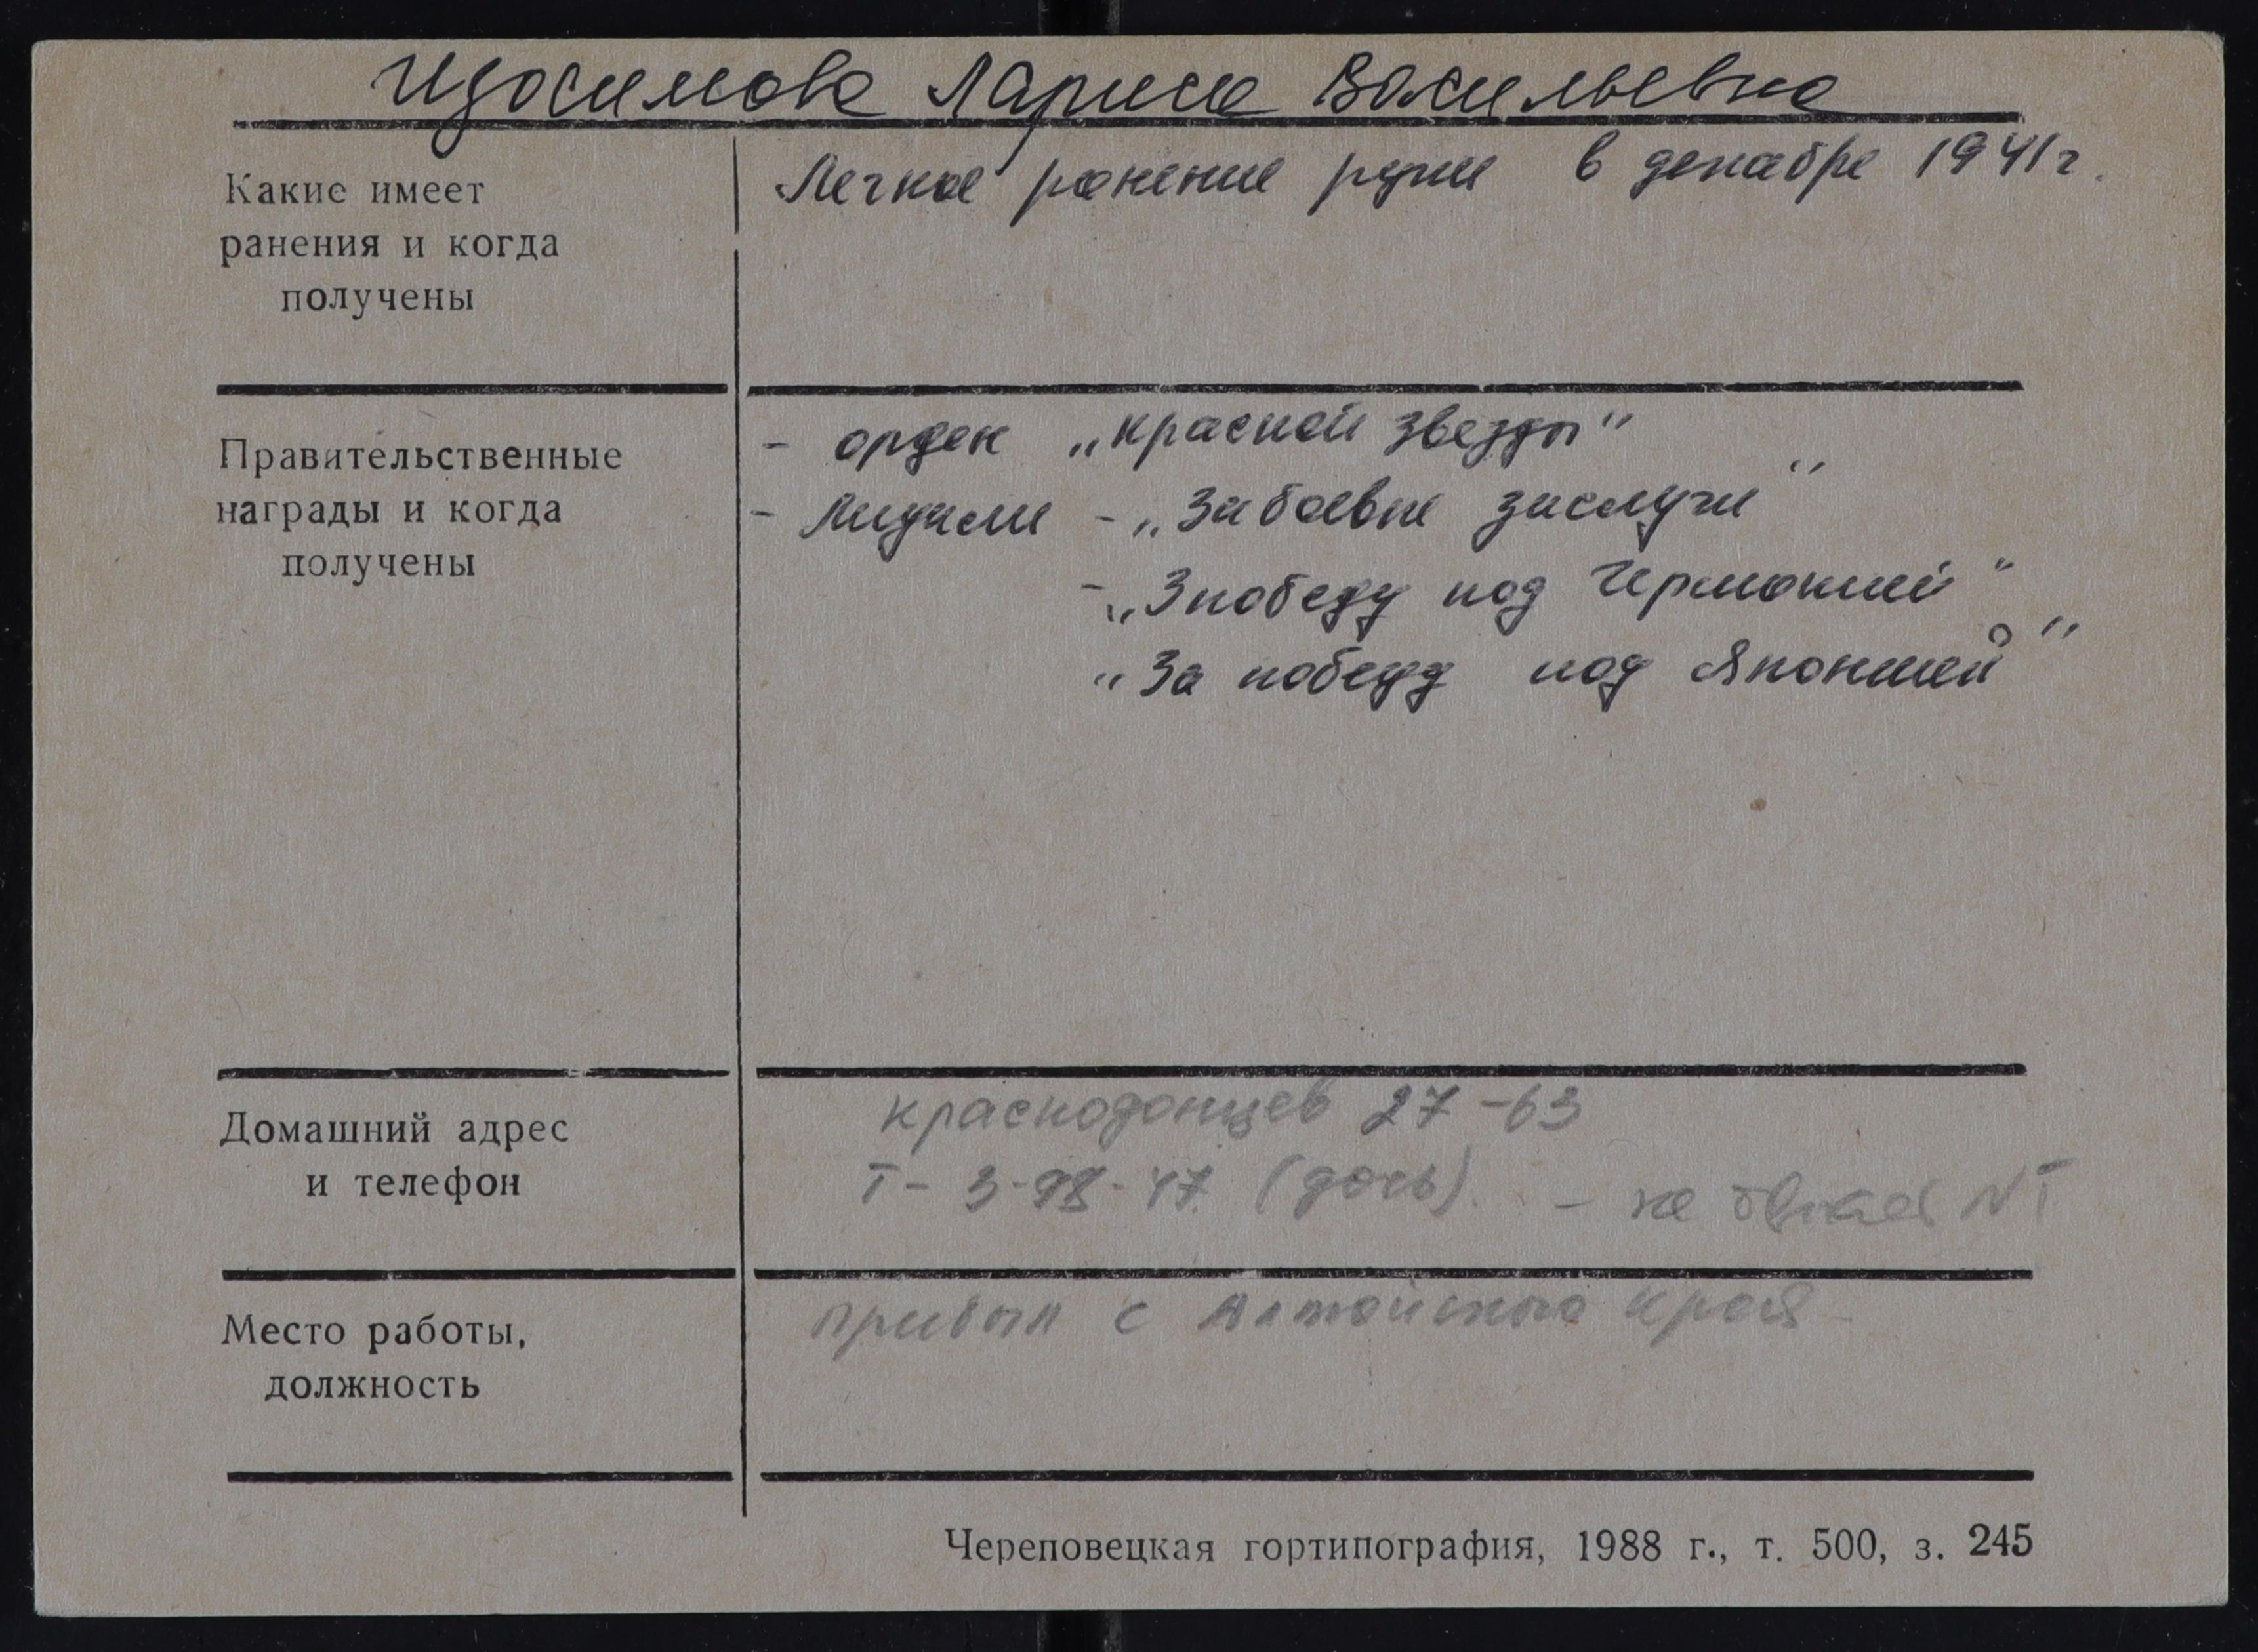 Изосимова Лариса Васильевна
Какие имеет
ранения и когда
получены
Легкое ранение руки в декабре 1941г.
Правительственные
награды и когда
получены
- орден „Красной Звезды"
- Медали - „За боевые заслуги"
- „З победу над Германией"
"За победу над Японией"
Домашний адрес
и телефон
Краснодонцев 27-63
Т- 3-98-47 (дочь) - не
Место работы,
должность
прибыл с Алтайского края
Череповецкая гортипография, 1988 г., т. 500, з. 245